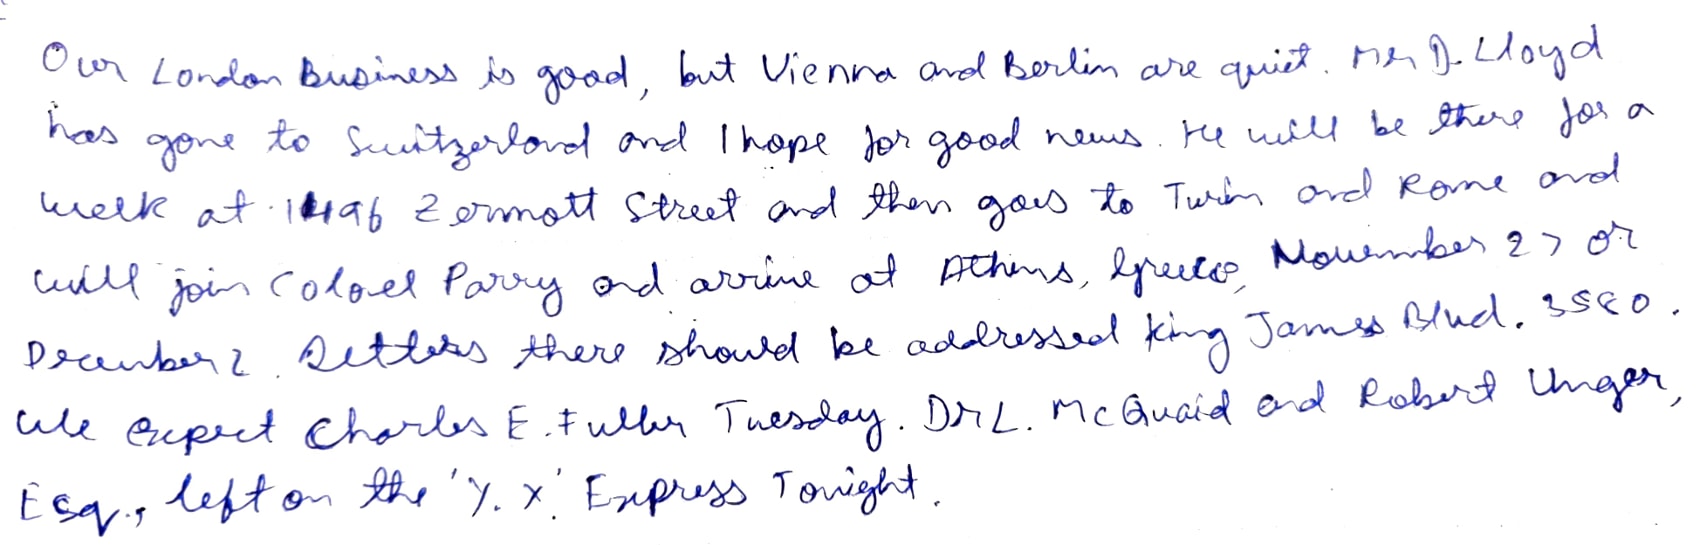 Our London Business is good, but Vienna and Berlin are quiet. Mr D. Lloyd
has gone to Switzerland and I hope for good news. He will be there for a
week at 1496 Zermott Street and then goes to Turin and Rome and
will join Colonel Parry and arrive at Athens, Greece, November 27 or
December 2. Letters there should be addressed King James Blvd. 3580.
We expect Charles E. Fuller Tuesday. Dr L. McQuaid and Robert Unger,
Esq., left on the 'Y. X.' Express Tonight.